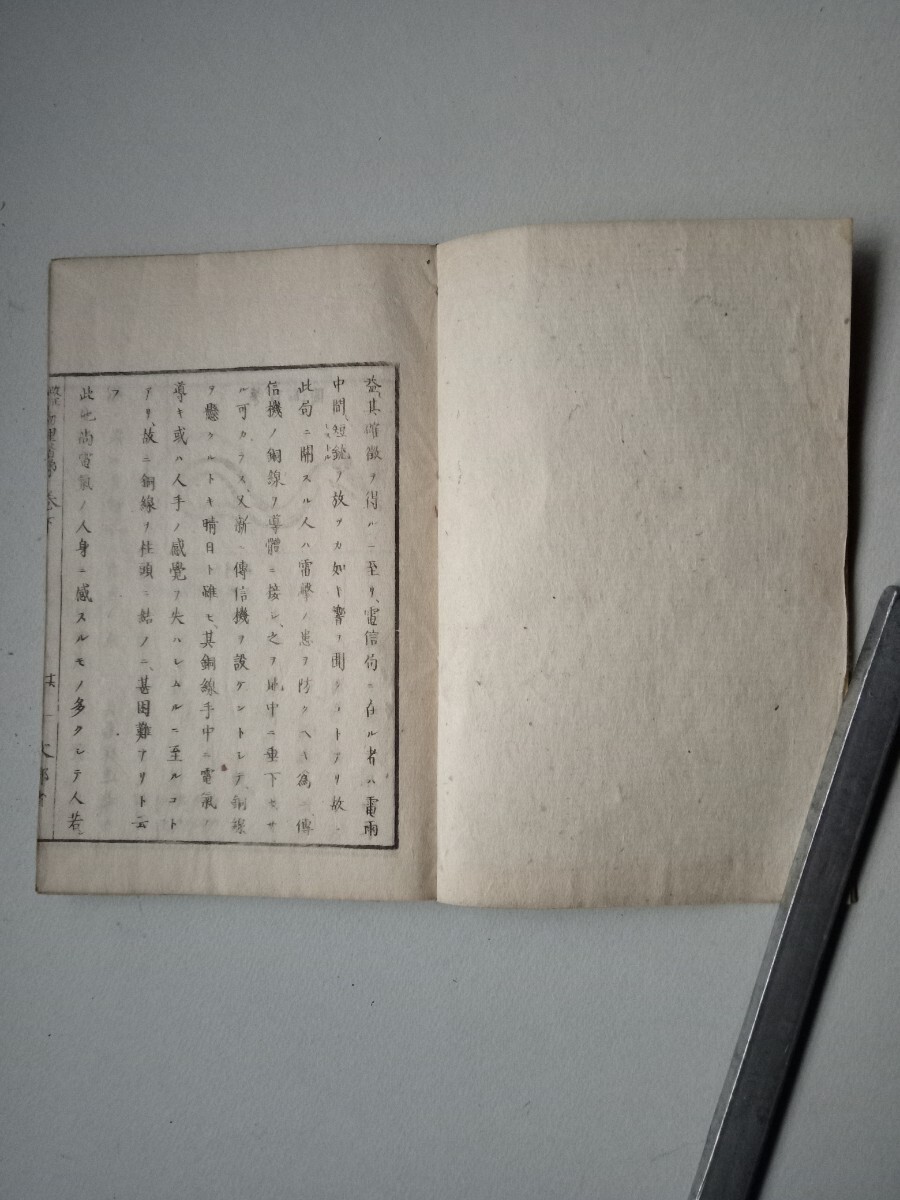 益其確徴ヲ得ルニ至リ、電信局ニ在ル者ハ電雨
中間、短銃ヲ放ツカ如キ響ヲ聞クコトアリ故ニ
ピストル
此局ニ關スル人ハ雷撃ノ患ヲ防クヘキ為ニ傳
信機ノ銅線ヲ導體ニ接シ、之ヲ地中ニ垂下セサ
ル可カラス又新ニ傳信機ヲ設ケントシテ、銅線
ヲ懸クルトキ晴日ト雖モ、其銅線手中ニ電氣ヲ
導キ或ハ人手ノ感覺ヲ失ハシムルニ至ルコト
アリ、故ニ銅線ヲ柱頭ニ結フニ、甚困難アリト云
フ
此他尚電氣ノ人身ニ感スルモノ多クシテ人若
理 卷下